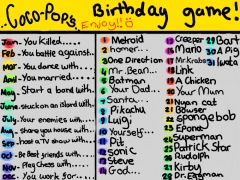 Coco-Pops Birthday game!
Enjoy!!
Jan- You Killed.....
Feb- You battle against...
Mar- You dance with...
April- You married....
May- Start a band with...
June- stuck on an Island with
July- Your enemies with...
Aug- share you house with
Sep- host a TV show with...
Oct- Be Best friends with...
Nov- Play Chess with...
Dec- You work for...
1 Metroid
2 homer..
3 One Direction
4 Mr. Bean..
5 Batman
6 Your Dad...
7 Santa..
8 Pikachu
9 Luigi
10 Yourself..
11 Pit
12 Sonic
13 Steve
14 God...
15 Creeper
16 Mario
17 Mr.Krabs
18 Link
19 A Chicken
20 Your Mum
21 Nyan cat
22 Bowser
23 Spongebob
24 Epona
25 Superman
26 Patrick Star
27 Rudolph
28 Kirby
29 Bart
30 A Pig
31 Iwata